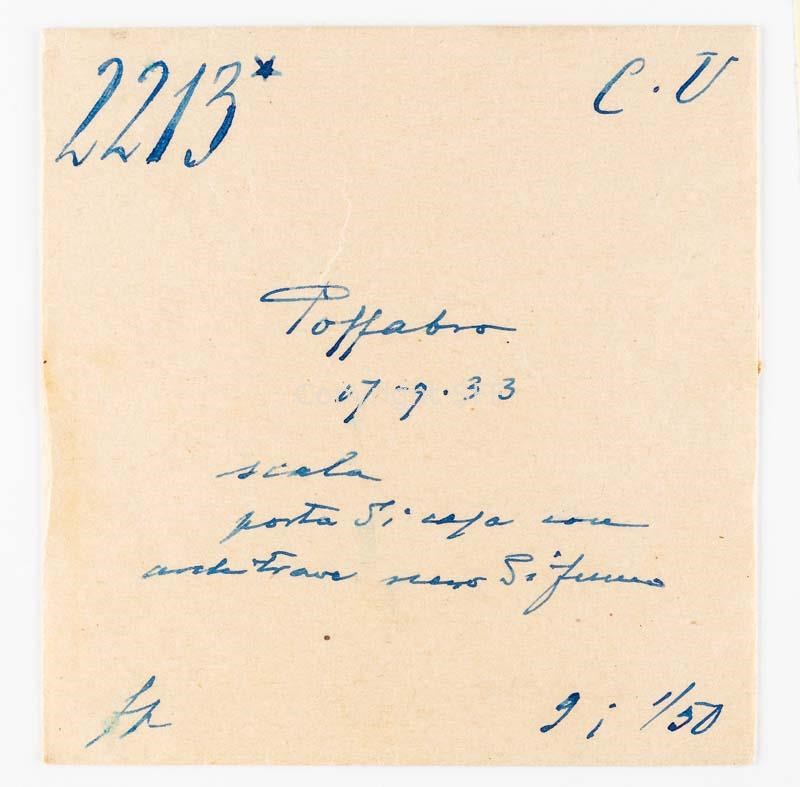 2213*
C. V
Poffabro
17-9.33
scala
porta di casa con
architrave nero di fumo
fp
9 i 1/50